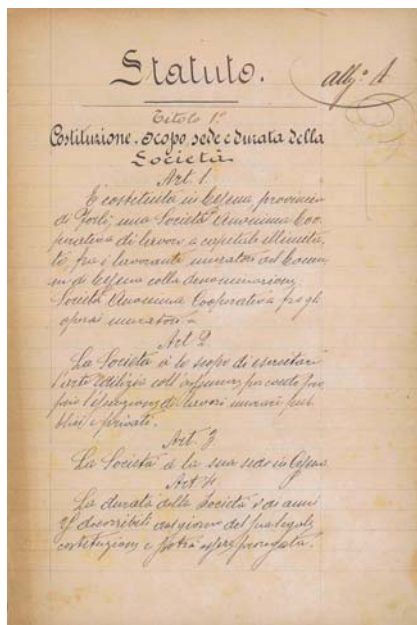 Statuto.
allg.o A
Titolo 1.o
Costituzione, scopo, sede e durata della
Società
Art. 1.
È costituita in Cesena, provincia
di Forlì, una Società Anonima Coo-
perativa di lavoro a capitale illimita-
to, fra i lavoranti muratori del Comu-
ne di Cesena colla denominazione
Società Anonima Cooperativa fra gli
operai muratori.
Art. 2
La Società à lo scopo di esercitare
l'arte edilizia coll'assumere per conto pro-
prio l'esecuzione di lavori murari pub-
blici e privati.
Art. 3
La Società à la sua sede in Cesena
Art. 4
La durata della Società è di anni
decorribili dal giorno del
costituzione e potrà essere prorogata.